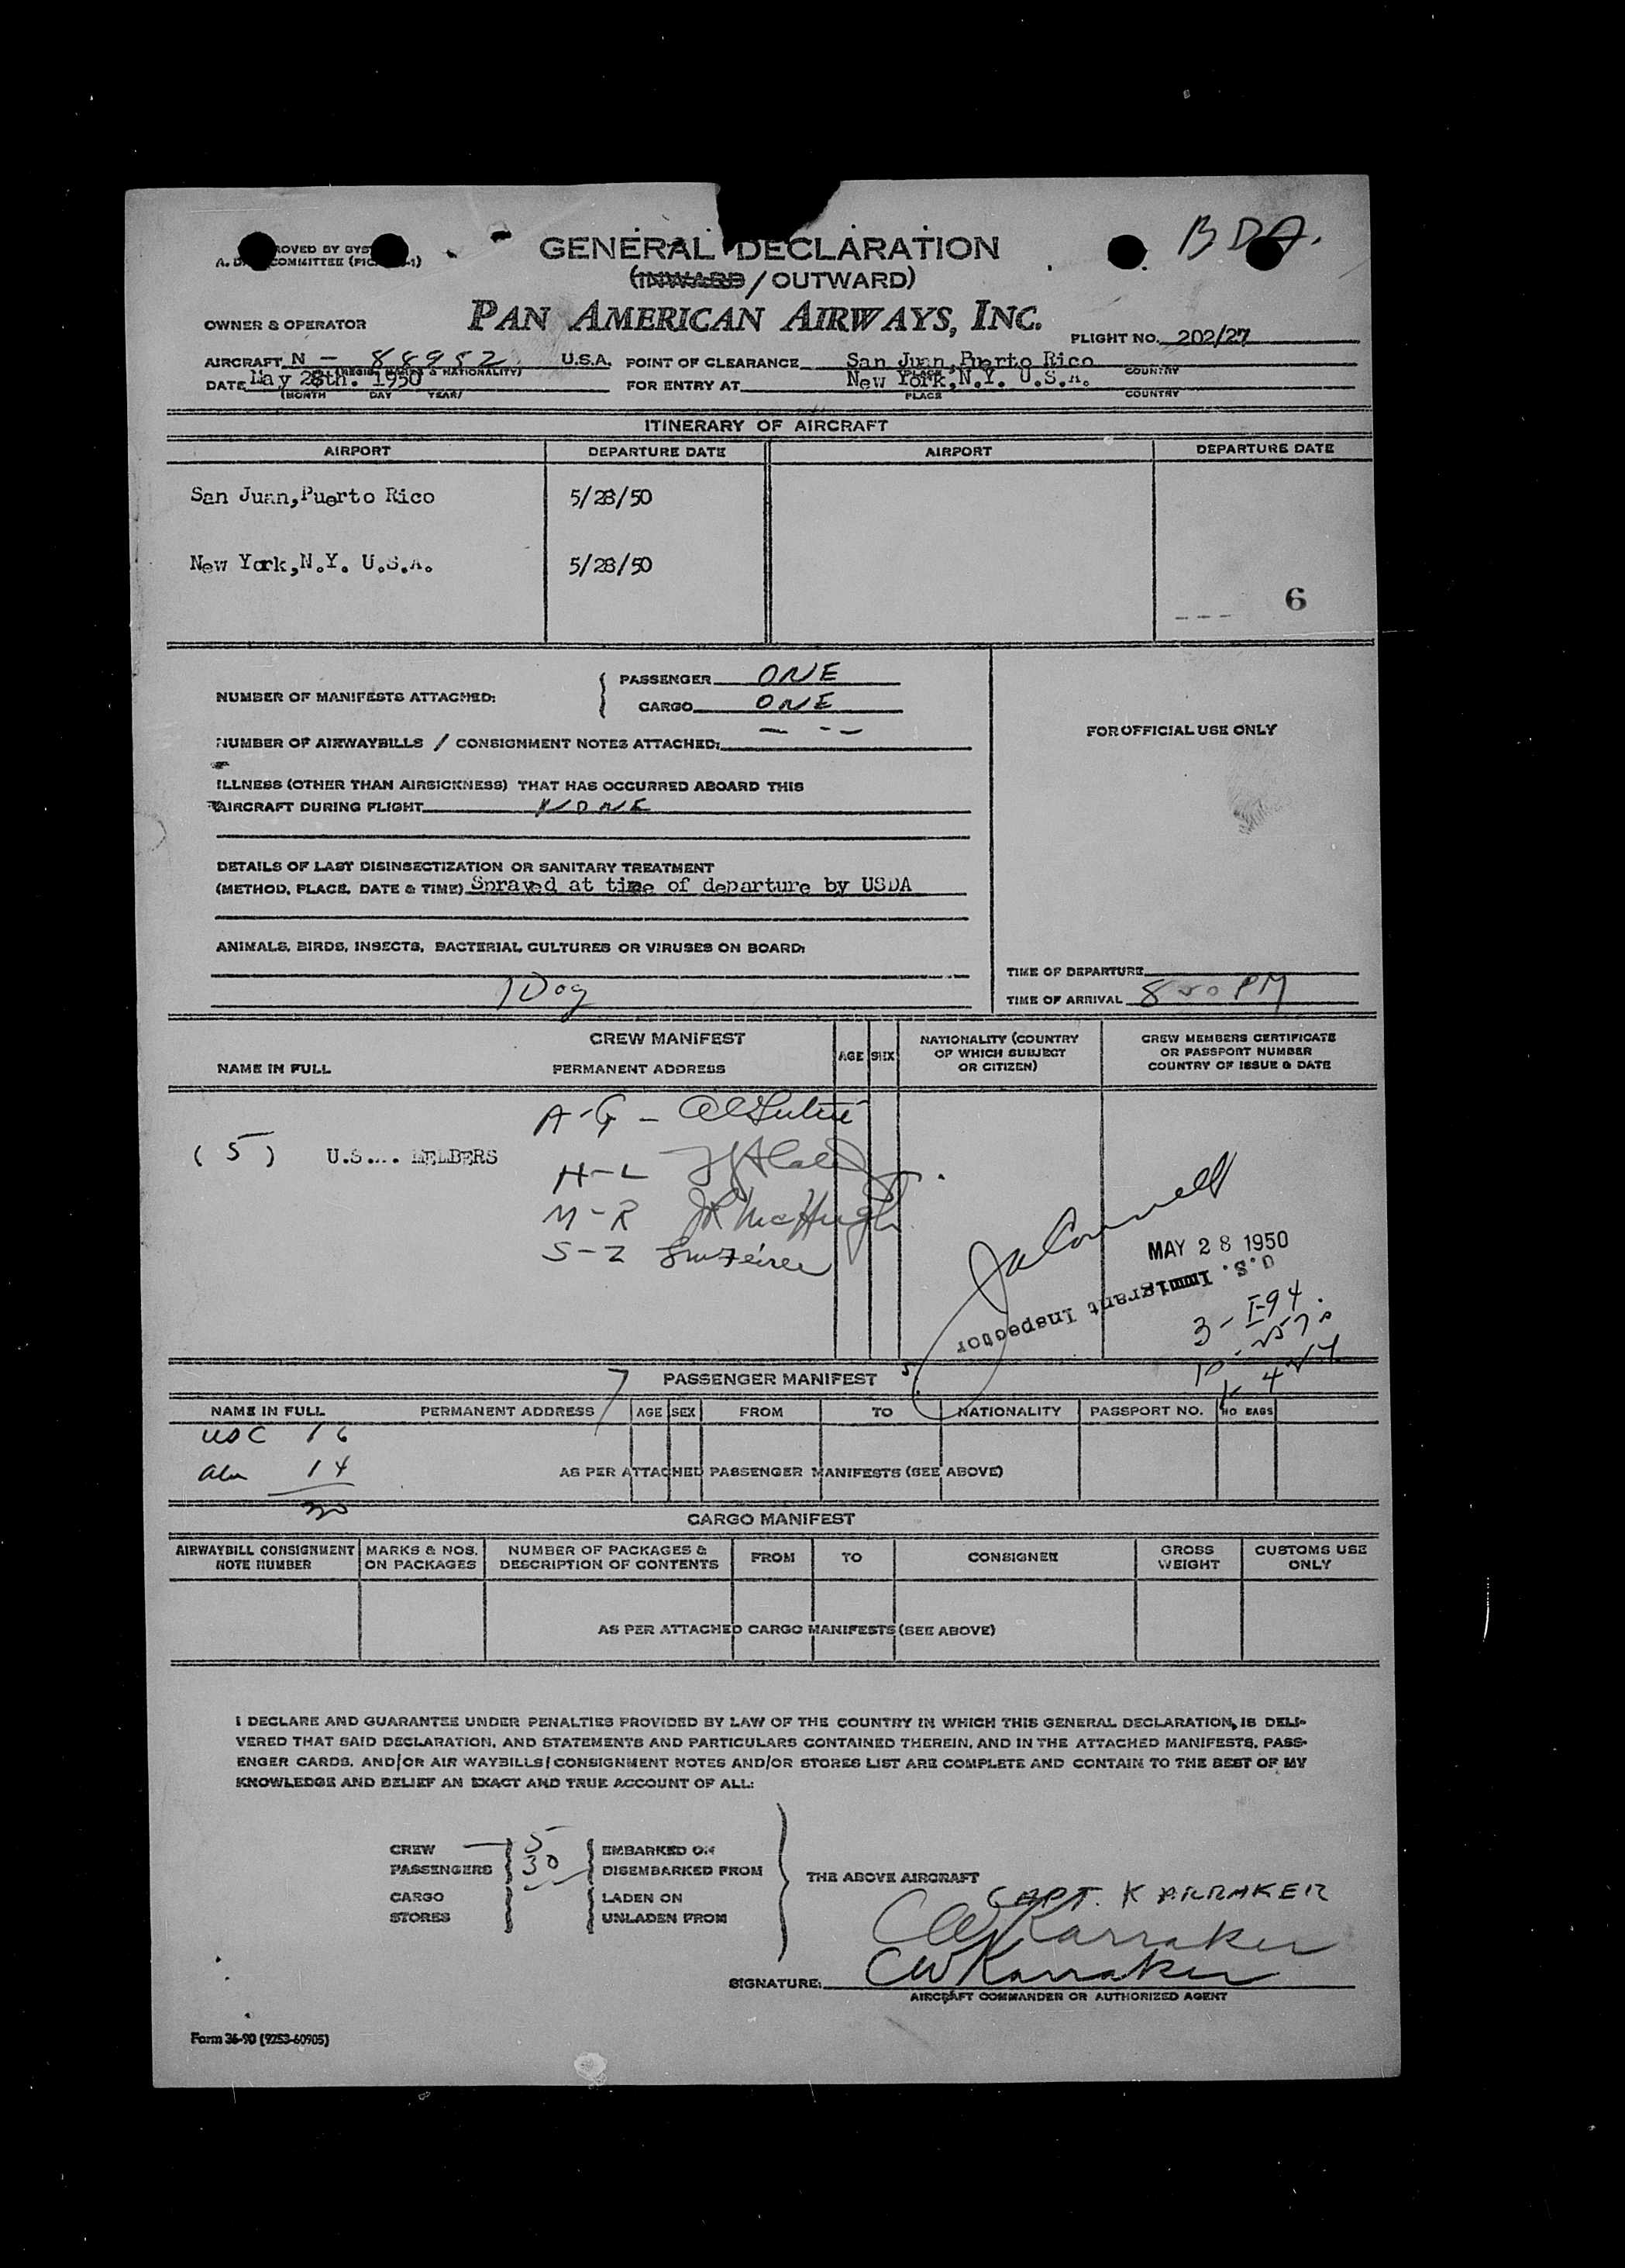 BDA.
GENERAL DECLARATION
(INWARD / OUTWARD)
PAN AMERICAN AIRWAYS, INC.
OWNER & OPERATOR
FLIGHT NO. 202/27
AIRCRAFT N - 88952 U.S.A. POINT OF CLEARANCE San Juan, Puerto Rico
(REGIS. MARKS & NATIONALITY) PLACE COUNTRY
DATE May 28th. 1950 FOR ENTRY AT New York, N.Y. U.S.A.
(MONTH DAY YEAR) PLACE COUNTRY
ITINERARY OF AIRCRAFT
AIRPORT DEPARTURE DATE AIRPORT DEPARTURE DATE
San Juan, Puerto Rico 5/28/50
New York, N.Y. U.S.A. 5/28/50
6
NUMBER OF MANIFESTS ATTACHED: { PASSENGER ONE
CARGO ONE
NUMBER OF AIRWAYBILLS / CONSIGNMENT NOTES ATTACHED: — - —
FOR OFFICIAL USE ONLY
ILLNESS (OTHER THAN AIRSICKNESS) THAT HAS OCCURRED ABOARD THIS
AIRCRAFT DURING FLIGHT NONE
DETAILS OF LAST DISINSECTIZATION OR SANITARY TREATMENT
(METHOD, PLACE, DATE & TIME) Sprayed at time of departure by USDA
ANIMALS, BIRDS, INSECTS, BACTERIAL CULTURES OR VIRUSES ON BOARD:
1 Dog
TIME OF DEPARTURE
TIME OF ARRIVAL 800 PM
CREW MANIFEST
NAME IN FULL PERMANENT ADDRESS AGE SEX NATIONALITY (COUNTRY OF WHICH SUBJECT OR CITIZEN) CREW MEMBERS CERTIFICATE OR PASSPORT NUMBER COUNTRY OF ISSUE & DATE
A-G -
(5) U.S. MEMBERS
H-L
M-R JR McHugh
S-Z
MAY 28 1950
U.S. Immigrant Inspector
3 - I-94.
PASSENGER MANIFEST
NAME IN FULL PERMANENT ADDRESS AGE SEX FROM TO NATIONALITY PASSPORT NO. NO BAGS
USC 16
Aln 14
AS PER ATTACHED PASSENGER MANIFESTS (SEE ABOVE)
30
CARGO MANIFEST
AIRWAYBILL CONSIGNMENT NOTE NUMBER MARKS & NOS. ON PACKAGES NUMBER OF PACKAGES & DESCRIPTION OF CONTENTS FROM TO CONSIGNEE GROSS WEIGHT CUSTOMS USE ONLY
AS PER ATTACHED CARGO MANIFESTS (SEE ABOVE)
I DECLARE AND GUARANTEE UNDER PENALTIES PROVIDED BY LAW OF THE COUNTRY IN WHICH THIS GENERAL DECLARATION, IS DELI-
VERED THAT SAID DECLARATION, AND STATEMENTS AND PARTICULARS CONTAINED THEREIN, AND IN THE ATTACHED MANIFESTS, PASS-
ENGER CARDS, AND/OR AIR WAYBILLS/CONSIGNMENT NOTES AND/OR STORES LIST ARE COMPLETE AND CONTAIN TO THE BEST OF MY
KNOWLEDGE AND BELIEF AN EXACT AND TRUE ACCOUNT OF ALL:
CREW 5 EMBARKED ON
PASSENGERS 30 DISEMBARKED FROM
THE ABOVE AIRCRAFT
CARGO LADEN ON
CAPT. KARRAKER
STORES UNLADEN FROM
CW Karraker
SIGNATURE: CW Karraker
AIRCRAFT COMMANDER OR AUTHORIZED AGENT
Form 36-90 (9253-60905)